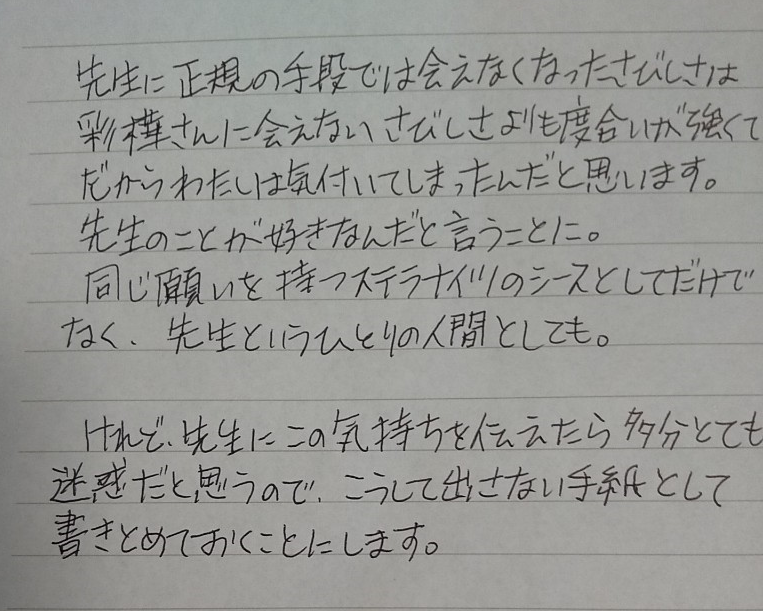 先生に正規の手段では会えなくなったさびしさは
彩樺さんに会えないさびしさよりも度合いが強くて
だからわたしは気付いてしまったんだと思います。
先生のことが好きなんだと言うことに。
同じ願いを持つステラナイツのシースとしてだけで
なく、先生というひとりの人間としても。
けれど、先生にこの気持ちを伝えたら多分とても
迷惑だと思うので、こうして出さない手紙として
書きとめておくことにします。